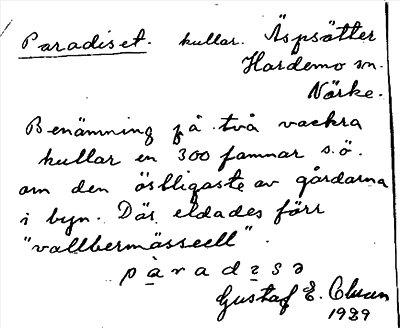 Paradiset. kullar. Äspsätter
Hardemo sn.
Närke.
Benämning på två vackra
kullar en 300 famnar s.ö.
om den östligaste av gårdarna
i byn. Där eldades förr
"vallbermässeell".
pàradɪsə
Gustaf E. Olsson
1929